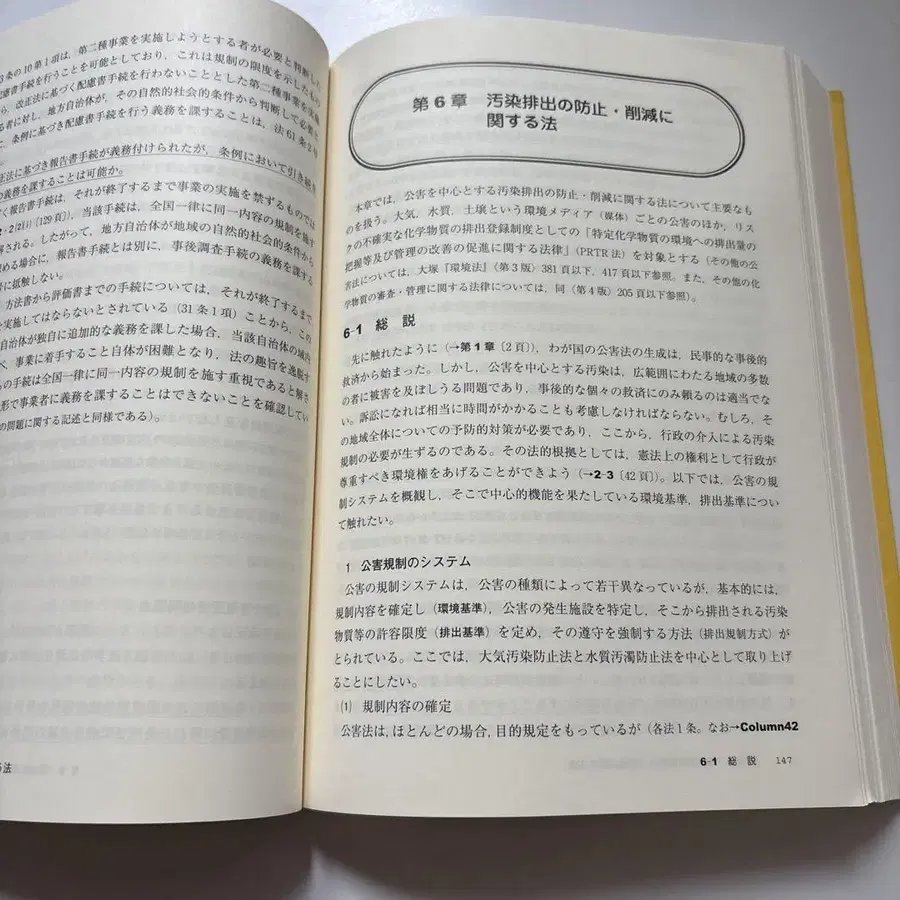 3条の10第1項は、第二種事業を実施しようとする者が必要と判断した
配慮書手続を行うことを可能としており、これは規制の限度を示したもの
ら、改正法に基づく配慮書手続を行わないこととした第二種事業を実施
る者に対し、地方自治体が、その自然的社会的条件から判断して必要と
に、条例に基づき配慮書手続を行う義務を課することは、法61条2号
正法に基づき報告書手続が義務付けられたが、条例において引き続き
の義務を課することは可能か。
く報告書手続は、それが終了するまで事業の実施を禁ずるものでは
2・2(2)1)〔129頁〕)、当該手続は、全国一律に同一内容の規制を施す
解される。したがって、地方自治体が地域の自然的社会的条件から
認める場合に、報告書手続とは別に、事後調査手続の義務を課する
号に抵触しない。
方法書から評価書までの手続については、それが終了するまで
を実施してはならないとされている(31条1項)ことから、この
自治体が独自に追加的な義務を課した場合、当該自治体の域内
べ、事業に着手すること自体が困難となり、法の趣旨を逸脱す
らの手続は全国一律に同一内容の規制を施す重視であると解さ
形で事業者に義務を課することはできないことを確認してい
の問題に関する記述と同様である)。
る法
第6章 汚染排出の防止・削減に
関する法
本章では、公害を中心とする汚染排出の防止・削減に関する法について主要なも
のを扱う。大気、水質、土壌という環境メディア(媒体)ごとの公害のほか、リス
クの不確実な化学物質の排出登録制度としての「特定化学物質の環境への排出量の
把握等及び管理の改善の促進に関する法律」(PRTR法)を対象とする(その他の公
害法については、大塚『環境法』(第3版)381頁以下、417頁以下参照。また、その他の化
学物質の審査・管理に関する法律については、同(第4版)205頁以下参照)。
6-1 総 説
先に触れたように(→第1章〔2頁〕)、わが国の公害法の生成は、民事的な事後的
救済から始まった。しかし、公害を中心とする汚染は、広範囲にわたる地域の多数
の者に被害を及ぼしうる問題であり、事後的な個々の救済にのみ頼るのは適当でな
い。訴訟になれば相当に時間がかかることも考慮しなければならない。むしろ、そ
の地域全体についての予防的対策が必要であり、ここから、行政の介入による汚染
規制の必要が生ずるのである。その法的根拠としては、憲法上の権利として行政が
尊重すべき環境権をあげることができよう(→2-3〔42頁〕)。以下では、公害の規
制システムを概観し、そこで中心的機能を果たしている環境基準、排出基準につい
て触れたい。
1 公害規制のシステム
公害の規制システムは、公害の種類によって若干異なっているが、基本的には、
規制内容を確定し(環境基準)、公害の発生施設を特定し、そこから排出される汚染
物質等の許容限度(排出基準)を定め、その遵守を強制する方法(排出規制方式)が
とられている。ここでは、大気汚染防止法と水質汚濁防止法を中心として取り上げ
ることにしたい。
(1) 規制内容の確定
公害法は、ほとんどの場合、目的規定をもっているが(各法1条。なお→Column42
6-1 総 説 147